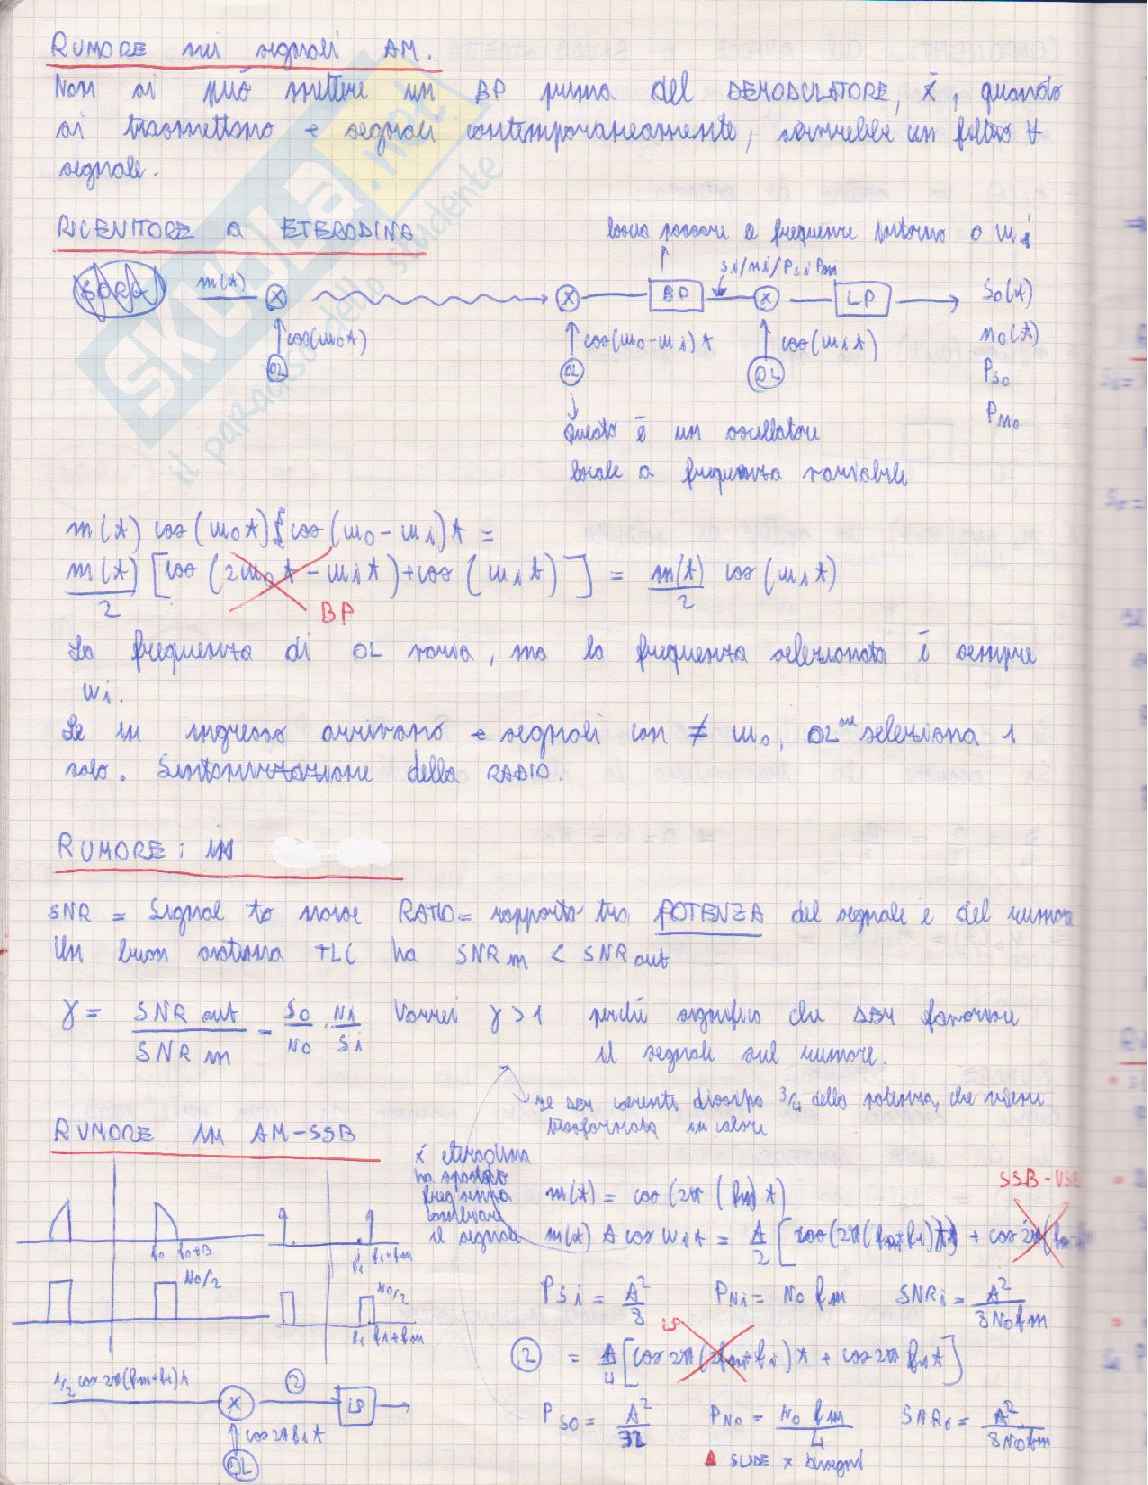 RUMORE sui segnali AM.
Non si può mettere un BP prima del DEMODULATORE, x, quando
si trasmettono + segnali contemporaneamente, servirebbe un filtro ∀
segnale.
RICEVITORE a ETERODINA
lascia passare le frequenze intorno a ωi
m(t)
si/ni/Psi Pni
X
X
BP
X
LP
So(t)
cos(ω0t)
cos(ω0-ωi)t
cos(ωit)
no(t)
OL
OL
OL
Pso
Pno
Questo è un oscillatore
locale a frequenza variabile
m(t) cos(ω0t) cos(ω0-ωi)t =
m(t)/2 [cos(2ω0t-ωit)+cos(ωit)] = m(t)/2 cos(ωit)
BP
La frequenza di OL varia, ma la frequenza selezionata è sempre
ωi.
Se in ingresso arrivano + segnali con ≠ ω0, OL ne seleziona 1
solo. Sintonizzazione della RADIO.
RUMORE: in
SNR = Signal to noise RATIO = rapporto tra POTENZA del segnale e del rumore
Un buon sistema TLC ha SNR in < SNR out
γ = SNR out / SNR in = So/No · Ni/Si Vorrei γ>1 perché significa che DEM favorisce
il segnale sul rumore.
se dem coerente dissipo 3/4 della potenza, che viene
trasformata in calore
RUMORE in AM-SSB
x eterodina
ha spostato
frequenza
il segnale
SSB-USB
m(t) = cos(2π(fm)t)
m(t) A cos ωit = A/2 [cos(2π(fm+fi)t) + cos2π(
f0 f0+B
fi fi+fm
N0/2
N0/2
fi fi+fm
Psi = A²/8 PNi = N0 fm SNRi = A²/8N0fm
LP
2 = A/4 [cos2π(2fi+fm)t + cos2π fmt]
A/2 cos2π(fm+fi)t
2
X
LP
cos2πfit
OL
Pso = A²/32 PNo = N0 fm/4 SNRo = A²/8N0fm
SLIDE x disegni